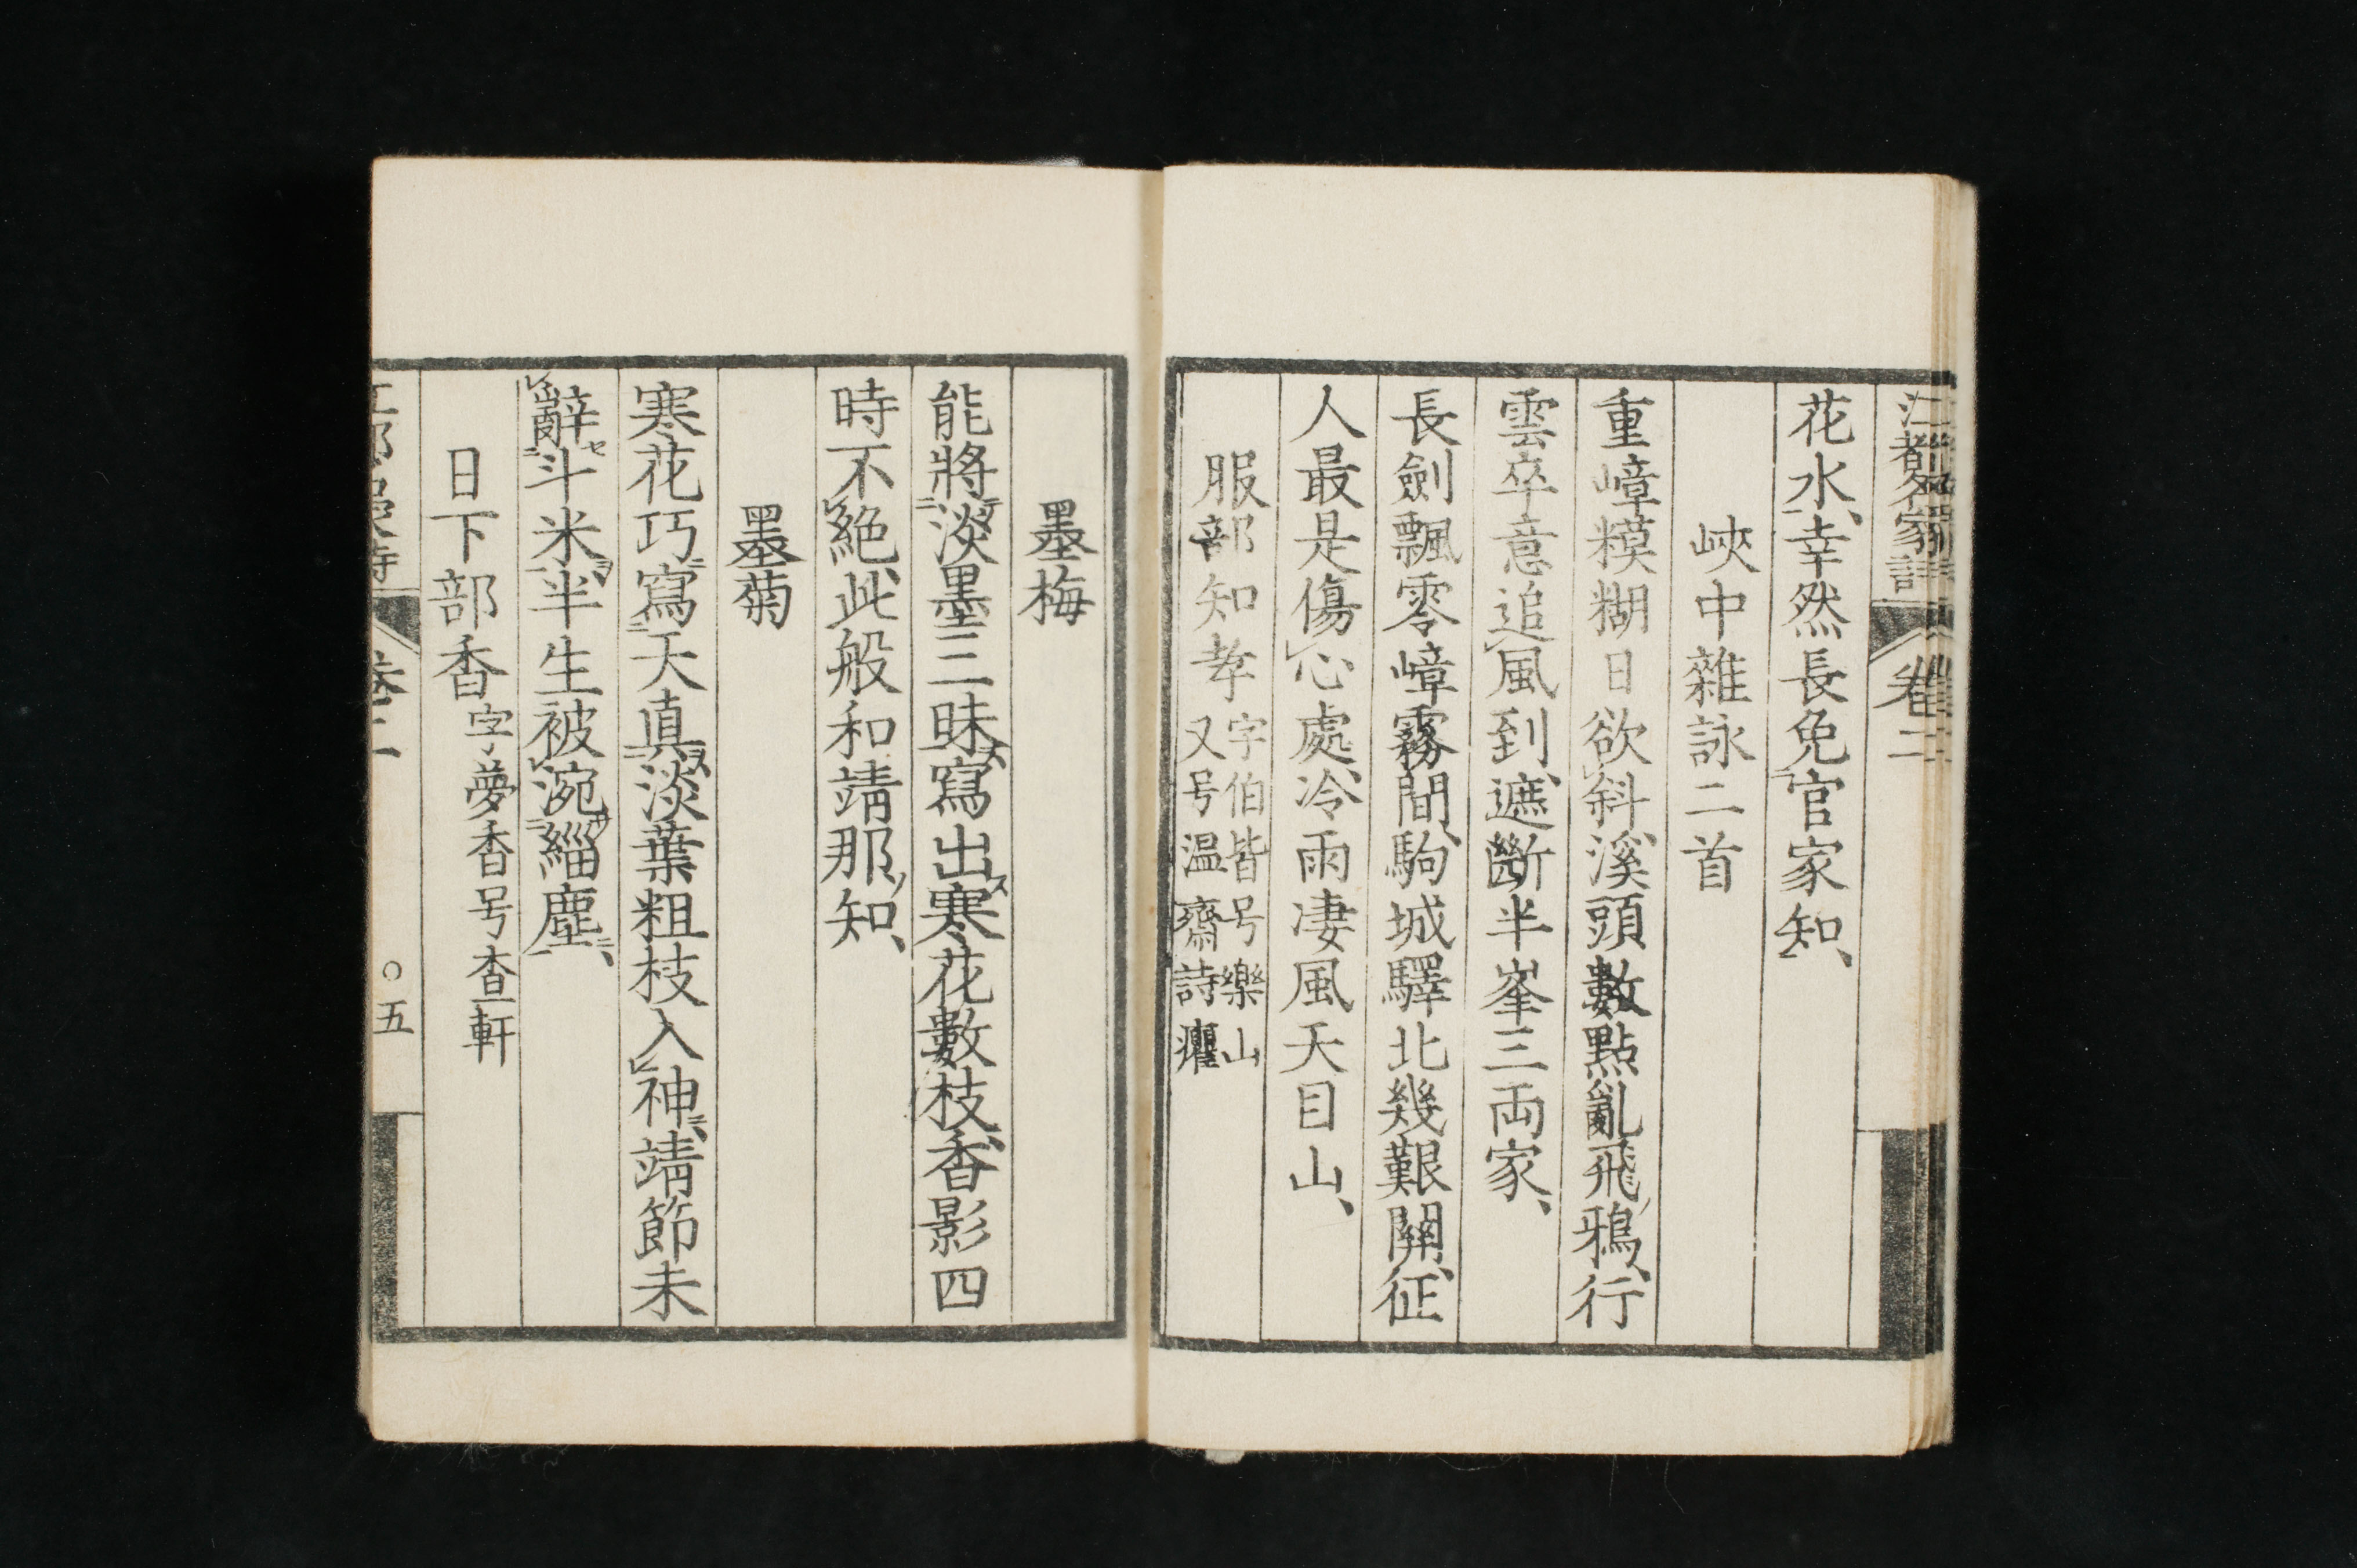 江都名家詩 卷二
花水、幸然長免官家知、
峽中雜詠二首
重嶂糢糊日欲斜、溪頭數點亂飛鴉、行
雲卒意追風到、遮斷半峯三両家、
長劍飄零嶂霧間、駒城驛北幾艱關、征
人最是傷心處、冷雨凄風天目山、
服部知孝 字伯皆号樂山
又号温齋詩癯
墨梅
能將淡墨三昧寫出寒花數枝、香影四
時不絕、此般和靖那知、
墨菊
寒花巧寫天真、淡葉粗枝入神、靖節未
辭斗米、半生被涴緇塵、
日下部香 字夢香号查軒
江都名家詩 卷二 ○五